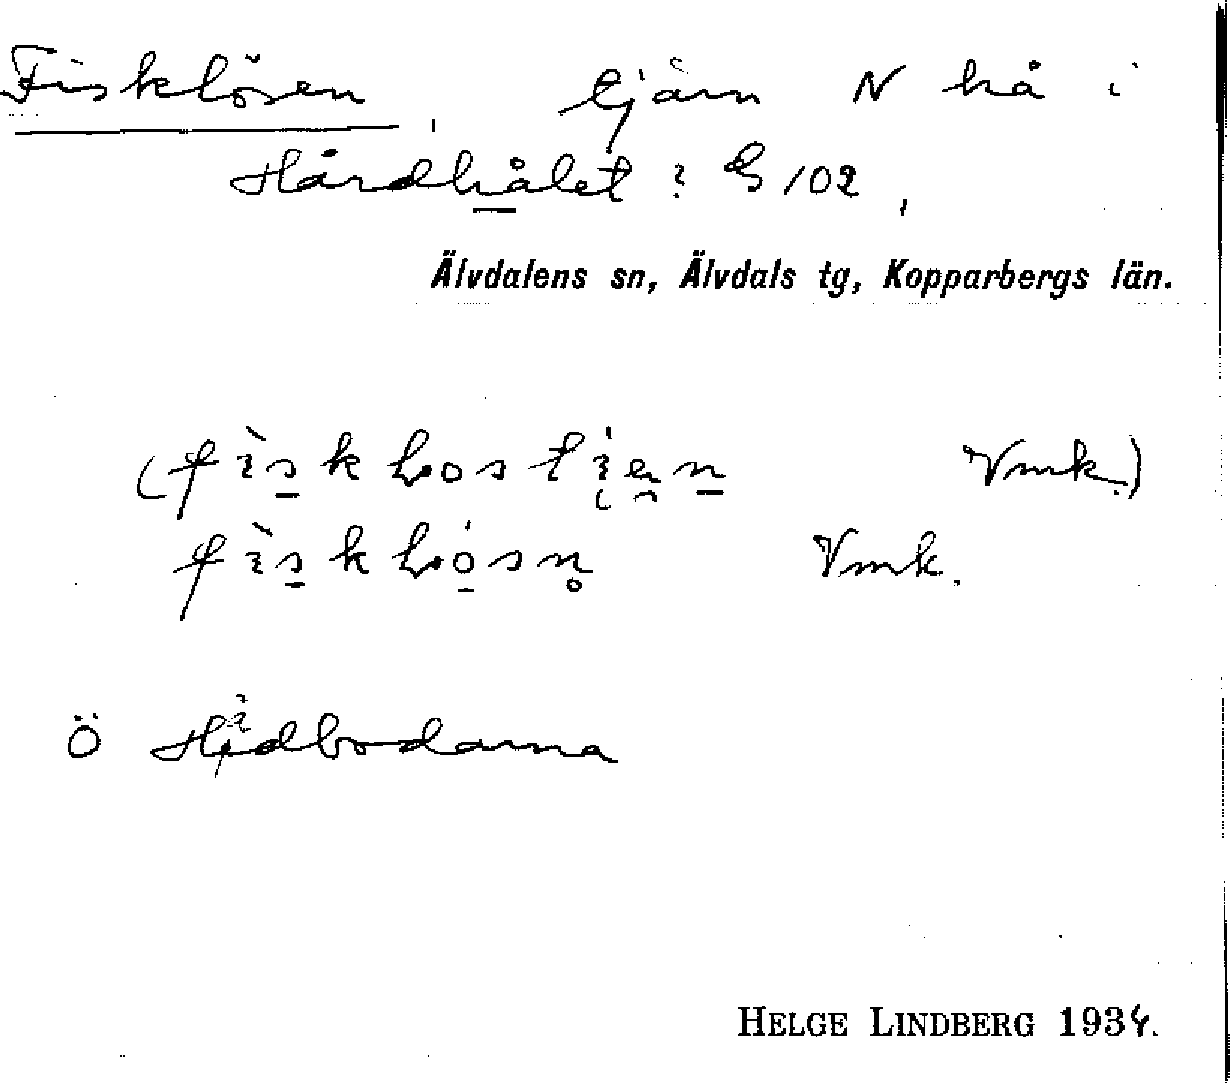 Fisklösen, tjärn N hå i
Hårdhålet? G 102,
Älvdalens sn, Älvdals tg, Kopparbergs län.
Vmk.)
Vmk.
Ö Hådbodarna
HELGE LINDBERG 1934.